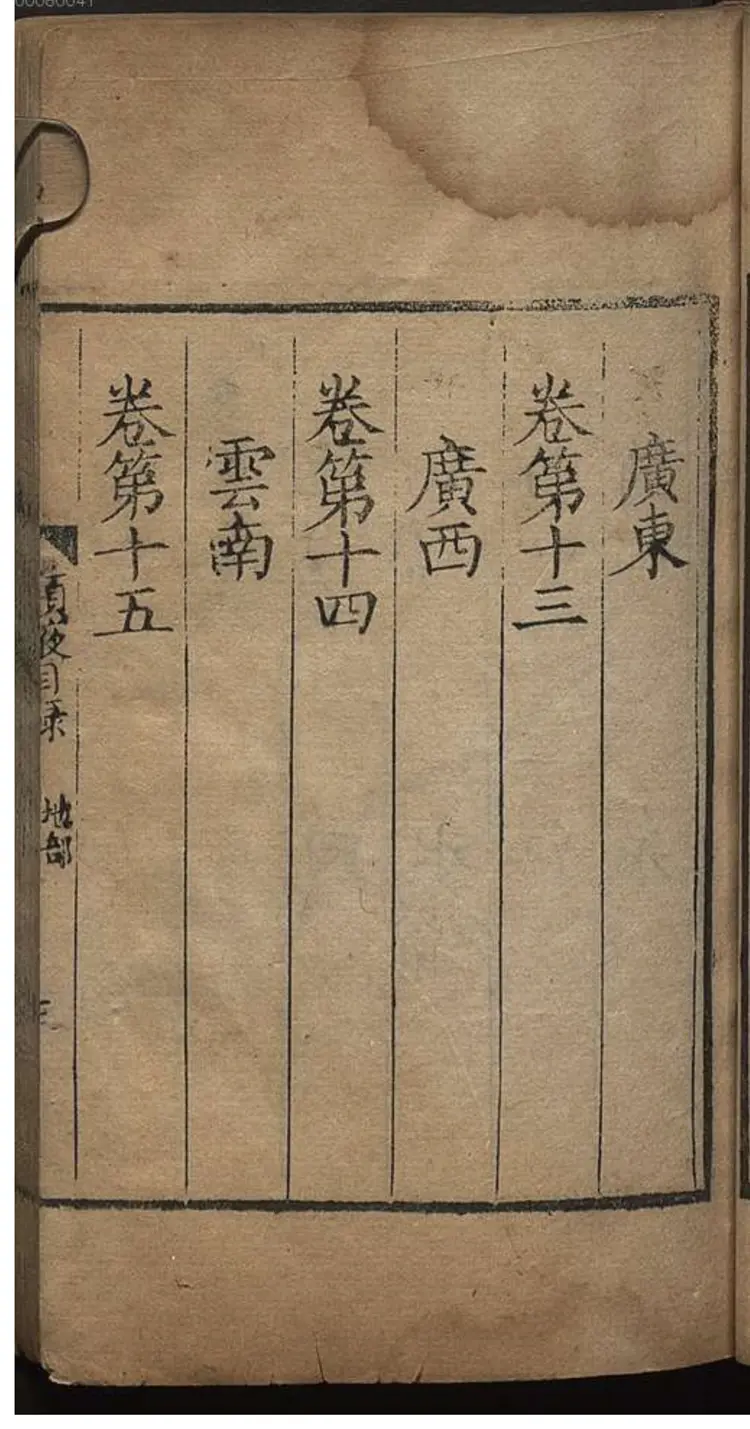 廣東
卷第十三
廣西
卷第十四
雲南
卷第十五
目录
地部